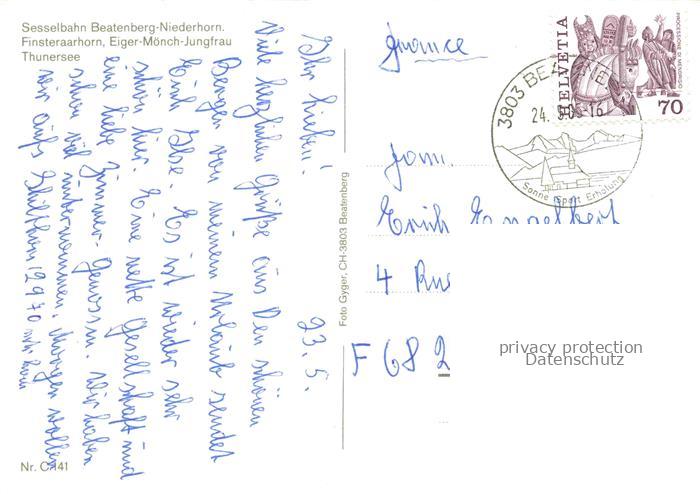 Sesselbahn Beatenberg-Niederhorn.
Finsteraarhorn, Eiger-Mönch-Jungfrau
Thunersee
23. 5.
Ihr Lieben!
Viele herzlichen Grüße aus den schönen
Bergen von meinem Urlaub sendet
Euch Ilse. Es ist wieder sehr
schön hier. Eine nette Gesellschaft und
eine liebe Zimmer-Genossin. Wir haben
schon viel unternommen. Morgen wollen
wir aufs Schilthorn 2970
Nr. C 141
Foto Gyger, CH-3803 Beatenberg
France
HELVETIA
PROCESSIONE DI MENDRISIO
70
3803 BEATENBE
24. 5. 16
Sonne Sport Erholung
Fam.
Erich
4 Rue
F 68 2
privacy protection
Datenschutz